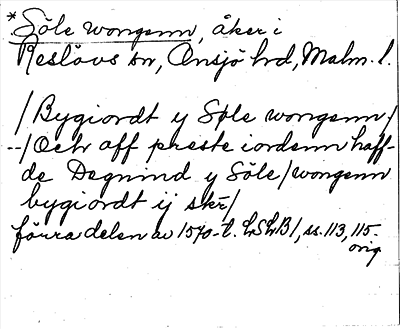 *Söle wongenn, åker i
Reslövs sn, Onsjö hrd, Malm. l.
/Bygiordt y Søle wongenn/
--/Och aff preste iordenn haff-
de Degnind y Söle/wongenn
bygiordt ij skr/
förra delen av 1570-t. LSLB1, ss. 113, 115-
orig